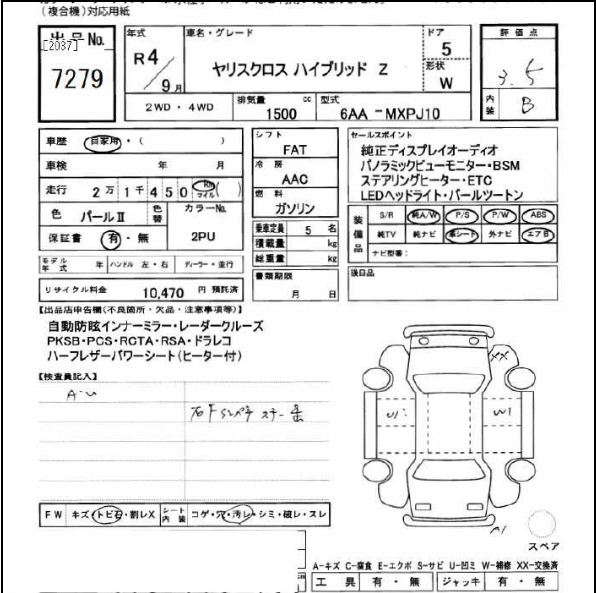 (複合機)対応用紙
出品No.
[2037]
7279
年式
R4/9月
車名・グレード
ヤリスクロス ハイブリッド Z
ドア
5
形状
W
2WD・4WD
排気量
1500 cc
型式
6AA-MXPJ10
評価点
3.5
内装
B
車歴 自家用・( )
車検 年 月
走行 2万1千450 Km マイル ( )
色 パールⅡ 色替 カラーNo. 2PU
保証書 有・無
モデル年式 年 ハンドル 左・右 ディーラー・並行
リサイクル料金 10,470 円 預託済
シフト
FAT
冷房
AAC
燃料
ガソリン
乗車定員 5 名
積載量 kg
総重量 kg
書類期限
月 日
セールスポイント
純正ディスプレイオーディオ
パノラミックビューモニター・BSM
ステアリングヒーター・ETC
LEDヘッドライト・パールツートン
装備品
S/R 純A/W P/S P/W ABS
純TV 純ナビ 革シート 外ナビ エアB
ナビ型番:
後日品
【出品店申告欄(不良箇所・欠品・注意事項等)】
自動防眩インナーミラー・レーダークルーズ
PKSB・PCS・RCTA・RSA・ドラレコ
ハーフレザーパワーシート(ヒーター付)
【検査員記入】
A・U
FW キズ・トビ石・割レX シート内装 コゲ・穴・汚レ・シミ・破レ・スレ
XX
U1
W1
A1
スペア
A-キズ C-腐食 E-エクボ S-サビ U-凹ミ W-補修 XX-交換済
工具 有・無 ジャッキ 有・無